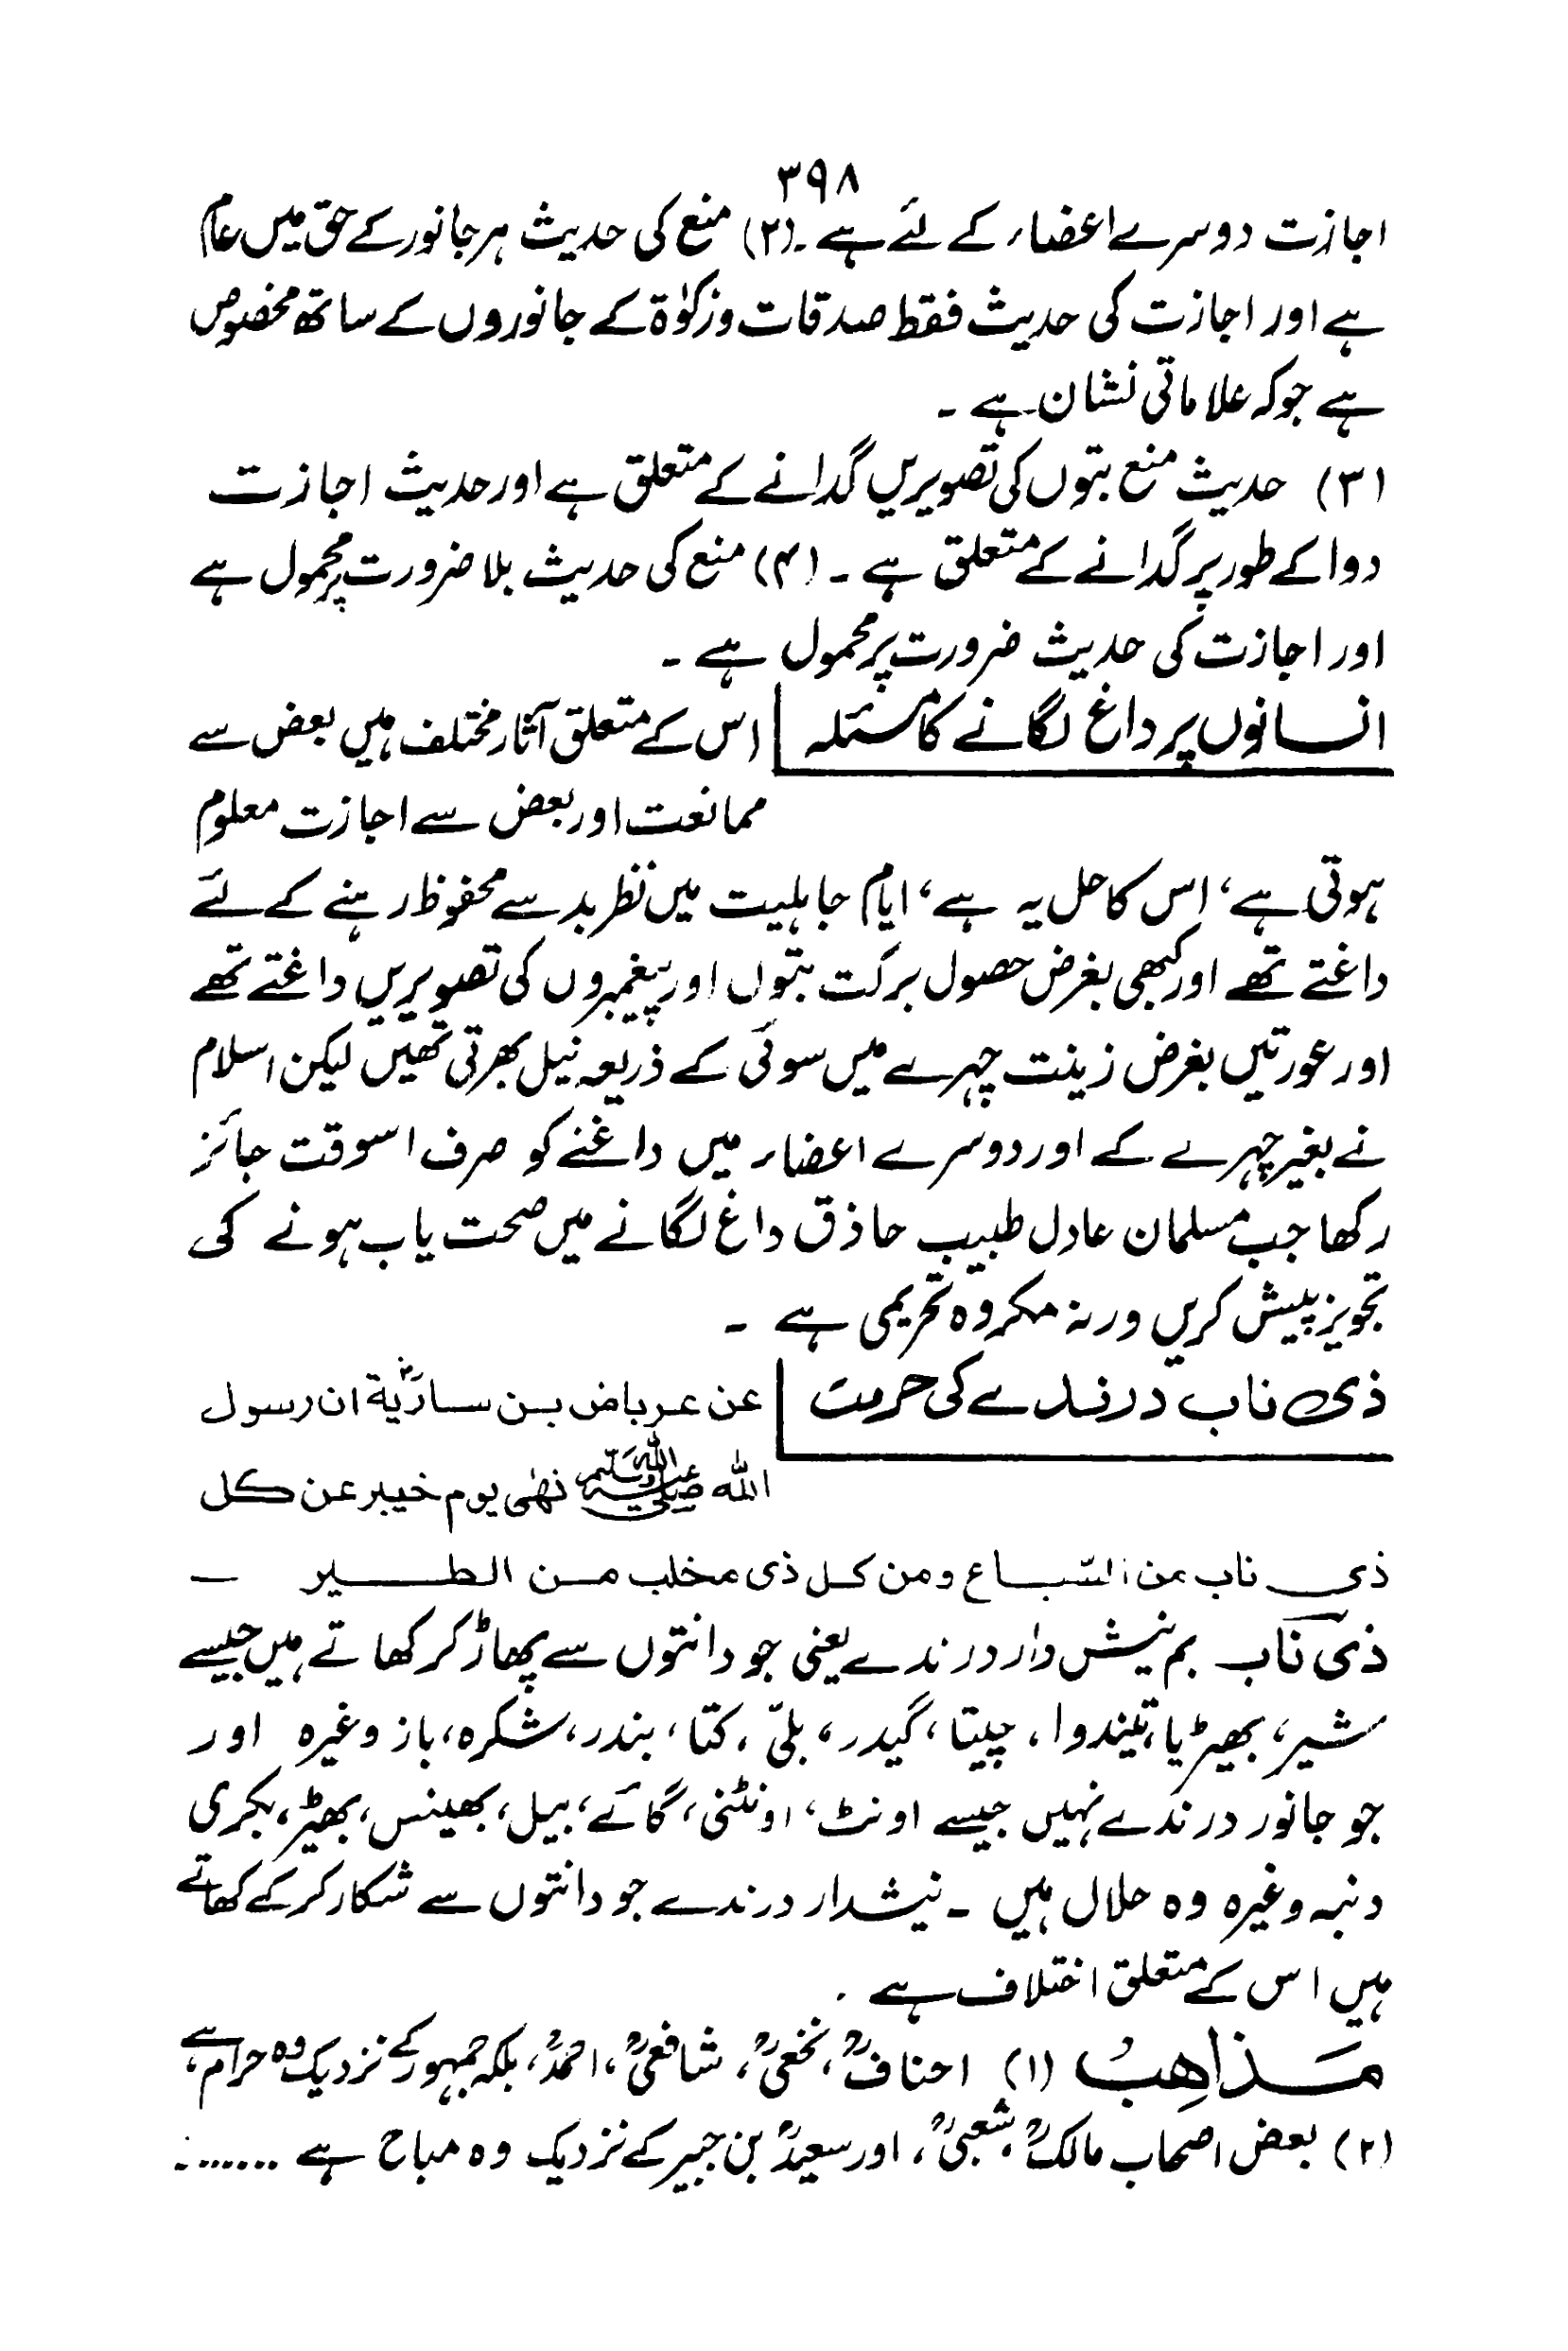 ۳۹۸
اجازت دوسرے اعضاء کے لئے ہے ۔(۲) منع کی حدیث ہر جانور کے حق میں عام
ہے اور اجازت کی حدیث فقط صدقات وزکوٰۃ کے جانوروں کے ساتھ مخصوص
ہے جوکہ علاماتی نشان ہے ۔
(۳) حدیث منع بتوں کی تصویریں گدانے کے متعلق ہے اور حدیث اجازت
دوا کے طور پر گدانے کے متعلق ہے ۔ (۴) منع کی حدیث بلا ضرورت پر محمول ہے
اور اجازت کی حدیث ضرورت پر محمول ہے ۔
انسانوں پر داغ لگانے کا مسئلہ | اس کے متعلق آثار مختلف ہیں بعض سے
ممانعت اور بعض سے اجازت معلوم
ہوتی ہے، اس کا حل یہ ہے، ایام جاہلیت میں نظر بد سے محفوظ رہنے کے لئے
داغتے تھے اور کبھی بغرض حصول برکت بتوں اور پیغمبروں کی تصویریں داغتے تھے
اور عورتیں بغرض زینت چہرے میں سوئی کے ذریعہ نیل بھرتی تھیں لیکن اسلام
نے بغیر چہرے کے اور دوسرے اعضاء میں داغنے کو صرف اسوقت جائز
رکھا جب مسلمان عادل طبیب حاذق داغ لگانے میں صحت یاب ہونے کی
تجویز پیش کریں ورنہ مکروہ تحریمی ہے ۔
ذی ناب درندے کی حرمت | عن عرباض بن ساریةؓ ان رسول
الله ﷺ نھٰی یوم خیبر عن کل
ذی ناب من السّباع ومن کل ذی مخلب من الطیر ــ
ذی ناب بم نیش دار درندے یعنی جو دانتوں سے پھاڑ کر کھاتے ہیں جیسے
شیر، بھیڑیا، تیندوا، چیتا، گیدر، بلیّ، کتا، بندر، شکرہ، باز وغیرہ اور
جو جانور درندے نہیں جیسے اونٹ، اونٹنی، گائے، بیل، بھینس، بھیڑ، بکری
دنبہ وغیرہ وہ حلال ہیں ۔ نیشدار درندے جو دانتوں سے شکار کر کے کھاتے
ہیں اس کے متعلق اختلاف ہے ۔
مَذاهِبُ (۱) احنافؒ، نخعیؒ، شافعیؒ، احمدؒ، بلکہ جمہور کے نزدیک وہ حرام ہے،
(۲) بعض اصحاب مالکؒ، شعبیؒ، اور سعیدؒ بن جبیر کے نزدیک وہ مباح ہے .......